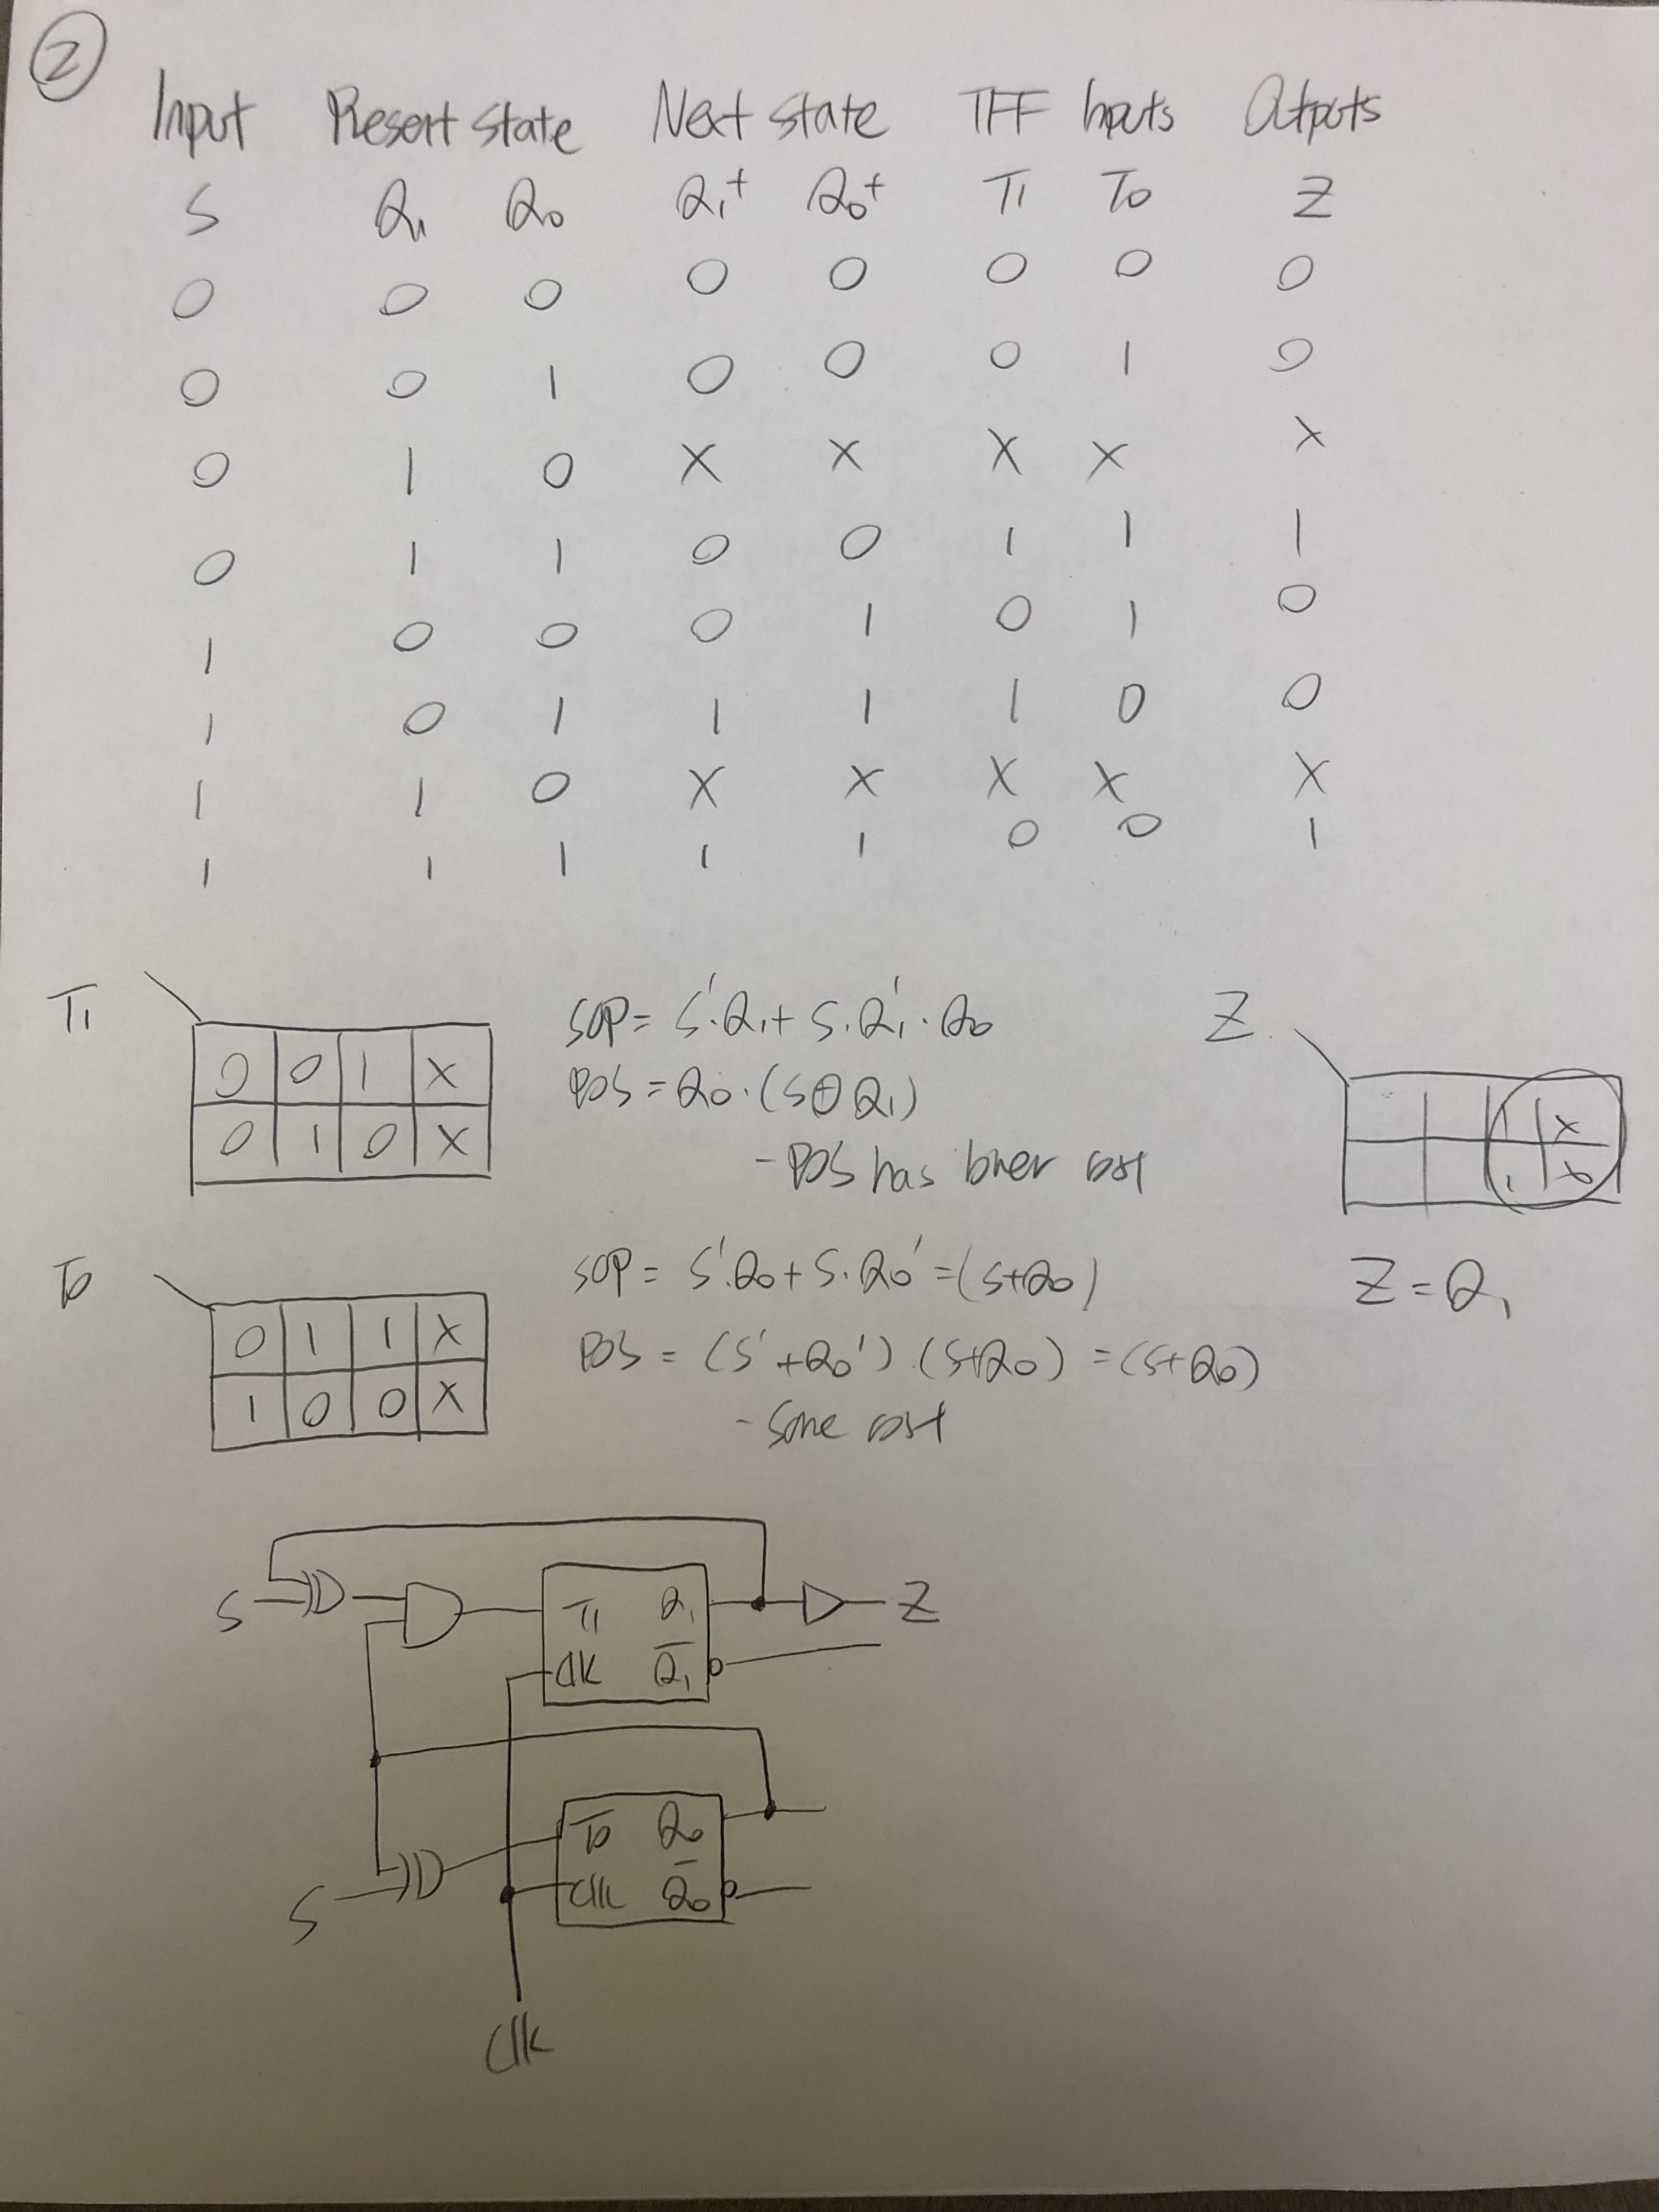 2
Input Present state Next state TFF Inputs Outputs
S Q₁ Q₀ Q₁⁺ Q₀⁺ T₁ T₀ Z
0 0 0 0 0 0 0 0
0 0 1 0 0 0 1 0
0 1 0 X X X X X
0 1 1 0 0 1 1 1
1 0 0 0 1 0 1 0
1 0 1 1 1 1 0 0
1 1 0 X X X X X
1 1 1 1 1 0 0 1
T₁
0 0 1 X
0 1 0 X
SOP = S'·Q₁ + S·Q₁'·Q₀
POS = Q₀·(S⊕Q₁)
- POS has lower cost
Z
1 X
1 X
Z = Q₁
T₀
0 1 1 X
1 0 0 X
SOP = S'·Q₀ + S·Q₀' = (S+Q₀)
POS = (S'+Q₀')·(S+Q₀) = (S+Q₀)
- Same cost
S T₁ Q₁ Z
Clk Q̅₁
T₀ Q₀
S Clk Q̅₀
Clk